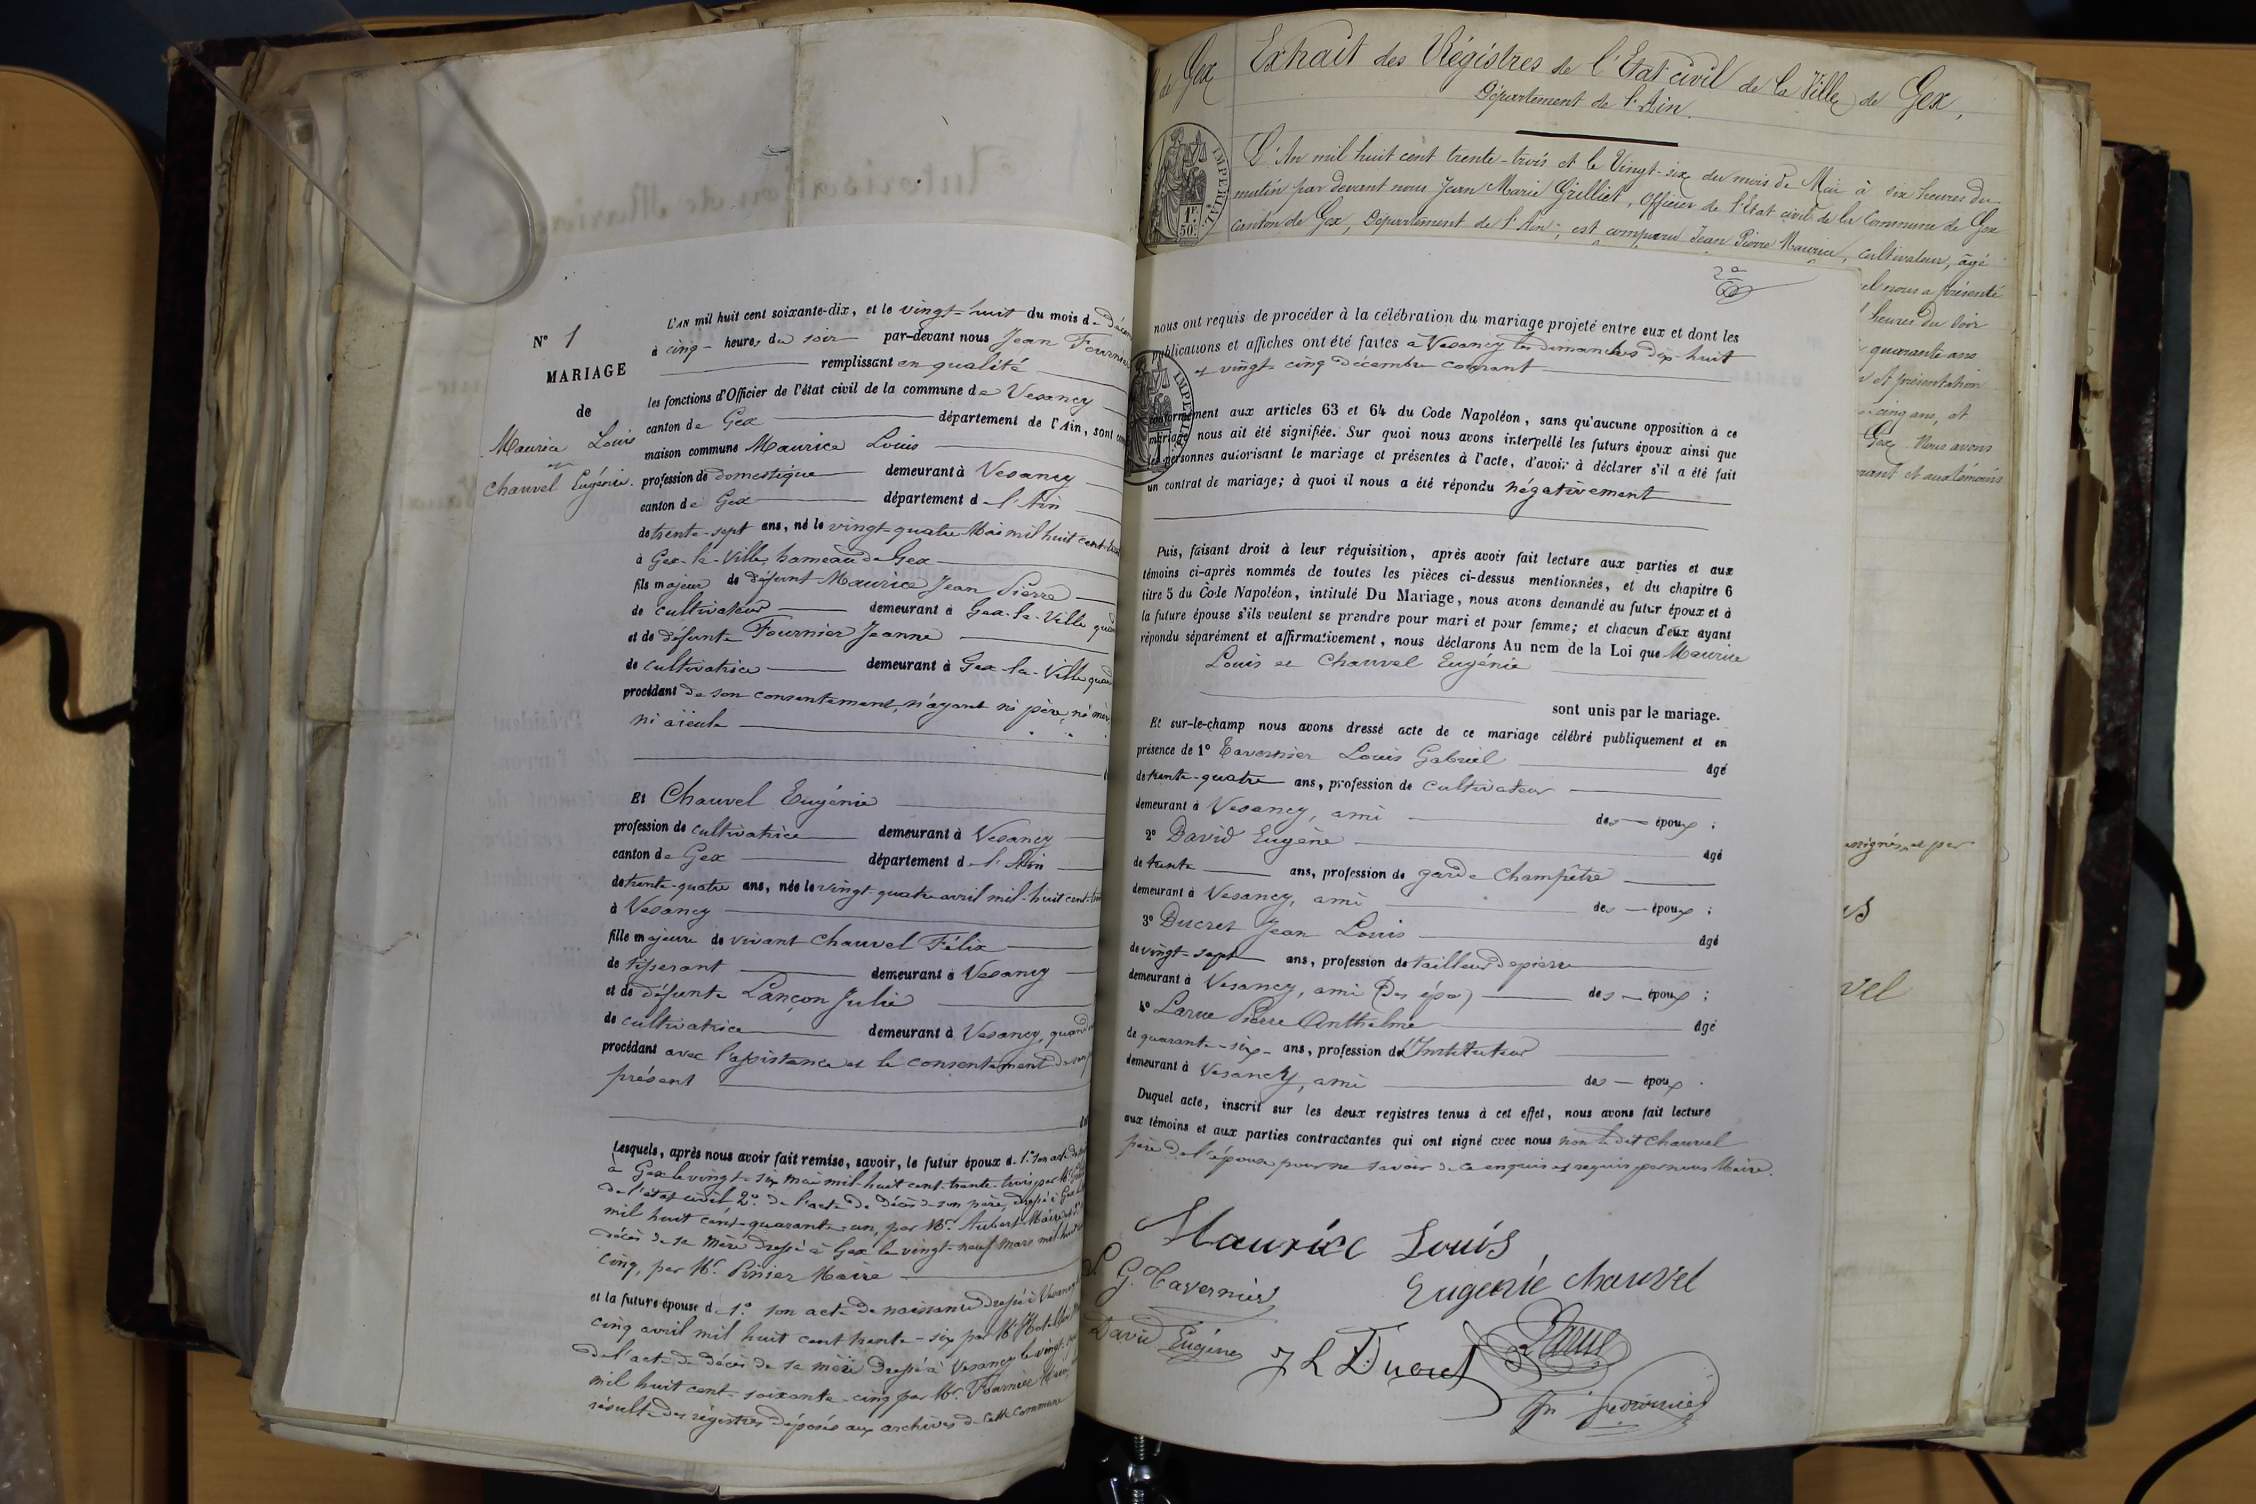 N° 1
MARIAGE
de
Maurice Louis
et
Chauvel Eugénie.
L'AN mil huit cent soixante-dix, et le vingt-huit du mois de
à cinq heures du soir par-devant nous Jean Fournier
remplissant en qualité
les fonctions d'Officier de l'état civil de la commune de Vesancy
canton de Gex département de l'Ain, sont
maison commune Maurice Louis
profession de domestique demeurant à Vesancy
canton de Gex département de l'Ain
de trente-sept ans, né le vingt-quatre Mai mil huit cent
à Gex-la-Ville, hameau de Gex
fils majeur de défunt Maurice Jean Pierre
de cultivateur demeurant à Gex-la-Ville
et de défunte Fournier Jeanne
de cultivatrice demeurant à Gex-la-Ville
procédant de son consentement, n'ayant ni père, ni mère,
ni aïeule
Et Chauvel Eugénie
profession de cultivatrice demeurant à Vesancy
canton de Gex département de l'Ain
de trente-quatre ans, née le vingt-quatre avril mil-huit cent
à Vesancy
fille majeure de vivant Chauvel Félix
de tisserant demeurant à Vesancy
et de défunte Lançon Julie
de cultivatrice demeurant à Vesancy, quand
procédant avec l'assistance et le consentement de son
présent
Lesquels, après nous avoir fait remise, savoir, le futur époux d. 1° son acte de
à Gex le vingt-six mai mil-huit cent-trente-trois par Mr
de l'état civil 2° de l'acte de décès de son père, dressé à Gex
mil huit cent-quarante-un, par Mr Aubert Maire
décès de sa mère dressé à Gex le vingt-neuf mars mil-huit
cinq, par Mr Pinier Maire
et la future épouse d. 1° son acte de naissance dressé à Vesancy
cinq avril mil huit cent trente-six par Mr
de l'acte de décès de sa mère dressé à Vesancy le vingt
mil huit cent-soixante-cinq par Mr Fournier Maire
résulte des régistres déposés aux archives de cette commune
de Gex
Extrait des Régistres de l'Etat civil de la Ville de Gex,
Département de l'Ain.
IMPERIAL
1F
50c
L'An mil huit cent trente-trois et le Vingt-six du mois de Mai à six heures du
matin par devant nous Jean Marie Grilliet, Officier de l'Etat civil de la Commune de Gex
canton de Gex, Département de l'Ain; est comparu Jean Pierre Maurice, cultivateur, âgé
nous a présenté
heures du soir
quarante ans
et présentation
cinq ans, et
Gex. Nous avons
et aux témoins
nous ont requis de procéder à la célébration du mariage projeté entre eux et dont les
publications et affiches ont été faites à Vesancy les dimanches dix-huit
et vingt cinq décembre courant
conformément aux articles 63 et 64 du Code Napoléon, sans qu'aucune opposition à ce
mariage nous ait été signifiée. Sur quoi nous avons interpellé les futurs époux ainsi que
les personnes autorisant le mariage et présentes à l'acte, d'avoir à déclarer s'il a été fait
un contrat de mariage; à quoi il nous a été répondu négativement
Puis, faisant droit à leur réquisition, après avoir fait lecture aux parties et aux
témoins ci-après nommés de toutes les pièces ci-dessus mentionnées, et du chapitre 6
titre 5 du Code Napoléon, intitulé Du Mariage, nous avons demandé au futur époux et à
la future épouse s'ils veulent se prendre pour mari et pour femme; et chacun d'eux ayant
répondu séparément et affirmativement, nous déclarons Au nom de la Loi que Maurice
Louis et Chauvel Eugénie
sont unis par le mariage.
Et sur-le-champ nous avons dressé acte de ce mariage célébré publiquement et en
présence de 1° Tavernier Louis Gabriel âgé
de trente-quatre ans, profession de cultivateur
demeurant à Vesancy, ami des époux;
2° David Eugène âgé
de trente ans, profession de garde champêtre
demeurant à Vesancy, ami des époux;
3° Ducret Jean Louis âgé
de vingt-sept ans, profession de tailleur de pierre
demeurant à Vesancy, ami (des épo) des époux;
4° Larue Pierre Anthelme âgé
de quarante-six ans, profession d'Instituteur
demeurant à Vesancy, ami des époux.
Duquel acte, inscrit sur les deux registres tenus à cet effet, nous avons fait lecture
aux témoins et aux parties contractantes qui ont signé avec nous non le dit Chauvel
père de l'épouse pour ne savoir de ce enquis et requis par nous Maire.
Maurice Louis
L G. Tavernier
Eugenie chauvel
David Eugène
J L Ducret
Larue
Jn Fournier